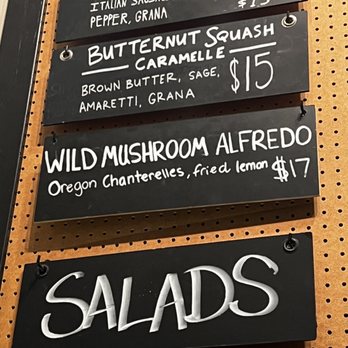 ITALIAN SAUSAGE
PEPPER, GRANA
BUTTERNUT SQUASH
CARAMELLE
BROWN BUTTER, SAGE, $15
AMARETTI, GRANA
WILD MUSHROOM ALFREDO
Oregon Chanterelles, fried lemon $17
SALADS